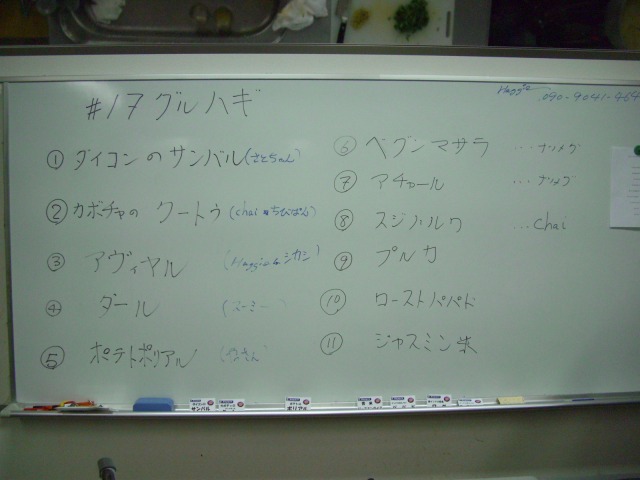 #17 グルハギ
Maggie
090-9041-464
① ダイコンのサンバル(さとちゃん)
② カボチャの クートゥ (chai &ちびぱん)
③ アヴィヤル (Maggie & シカシ)
④ ダール
⑤ ポテトポリアル
⑥ ベグンマサラ ...ナツメグ
⑦ アチャール ...ナツメグ
⑧ スジハルワ ...chai
⑨ プルカ
⑩ ローストパパド
⑪ ジャスミン米
サンバル
ポリアル